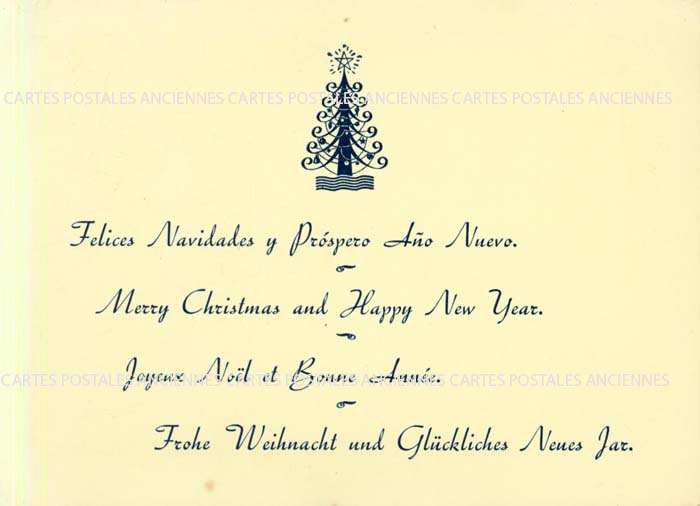 CARTES POSTALES ANCIENNES CARTES POSTALES ANCIENNES CARTES POSTALES ANCIENNES
Felices Navidades y Próspero Año Nuevo.
Merry Christmas and Happy New Year.
Joyeux Noël et Bonne Année.
CARTES POSTALES ANCIENNES CARTES POSTALES ANCIENNES CARTES POSTALES ANCIENNES
Frohe Weihnacht und Glückliches Neues Jar.